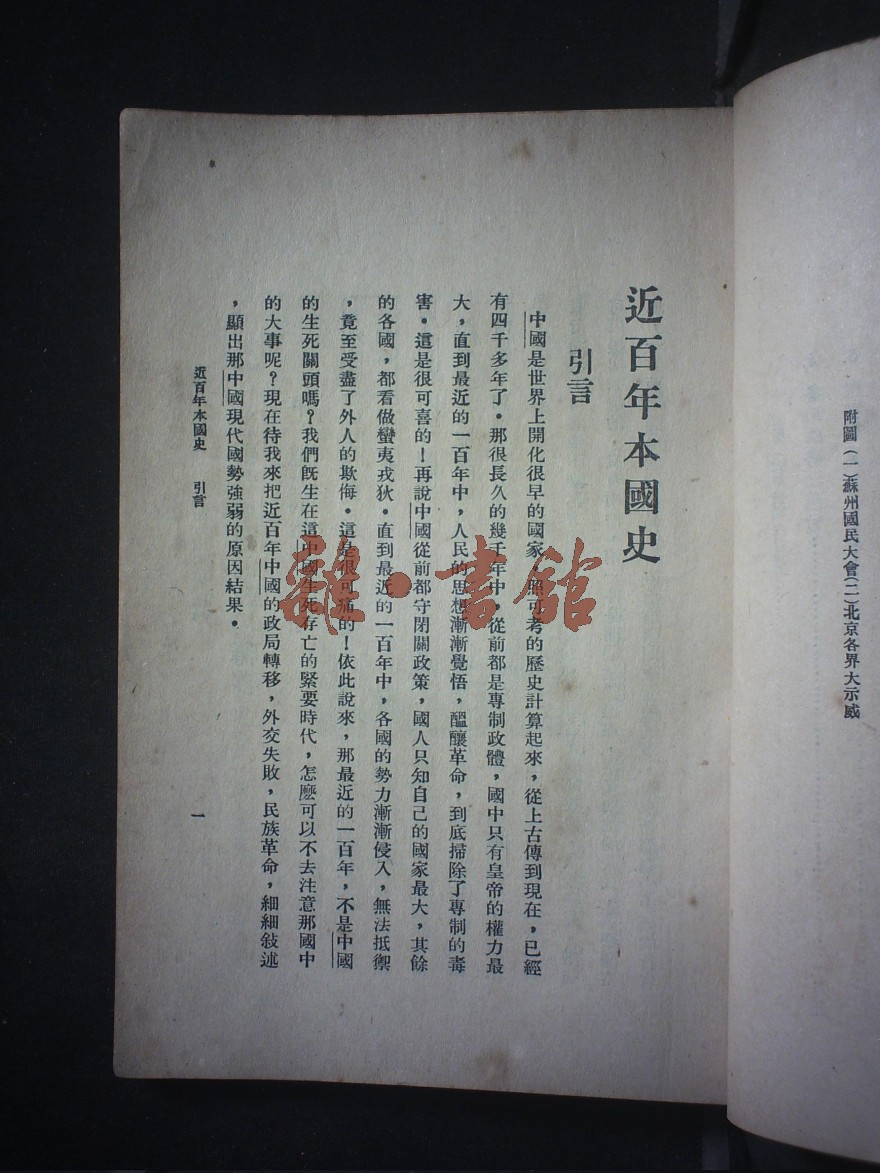 附圖（一）蘇州國民大會（二）北京各界大示威
近百年本國史
引言
中國是世界上開化很早的國家，照可考的歷史計算起來，從上古傳到現在，已經
有四千多年了。那很長久的幾千年中，從前都是專制政體，國中只有皇帝的權力最
大，直到最近的一百年中，人民的思想漸漸覺悟，醞釀革命，到底掃除了專制的毒
害。這是很可喜的！再說中國從前都守閉關政策，國人只知自己的國家最大，其餘
的各國，都看做蠻夷戎狄。直到最近的一百年中，各國的勢力漸漸侵入，無法抵禦
，竟至受盡了外人的欺侮。這是很可痛的！依此說來，那最近的一百年，不是中國
的生死關頭嗎？我們既生在這中國生死存亡的緊要時代，怎麽可以不去注意那國中
的大事呢？現在待我來把近百年中國的政局轉移，外交失敗，民族革命，細細敍述
，顯出那中國現代國勢強弱的原因結果。
近百年本國史　引言
一
雜·書館